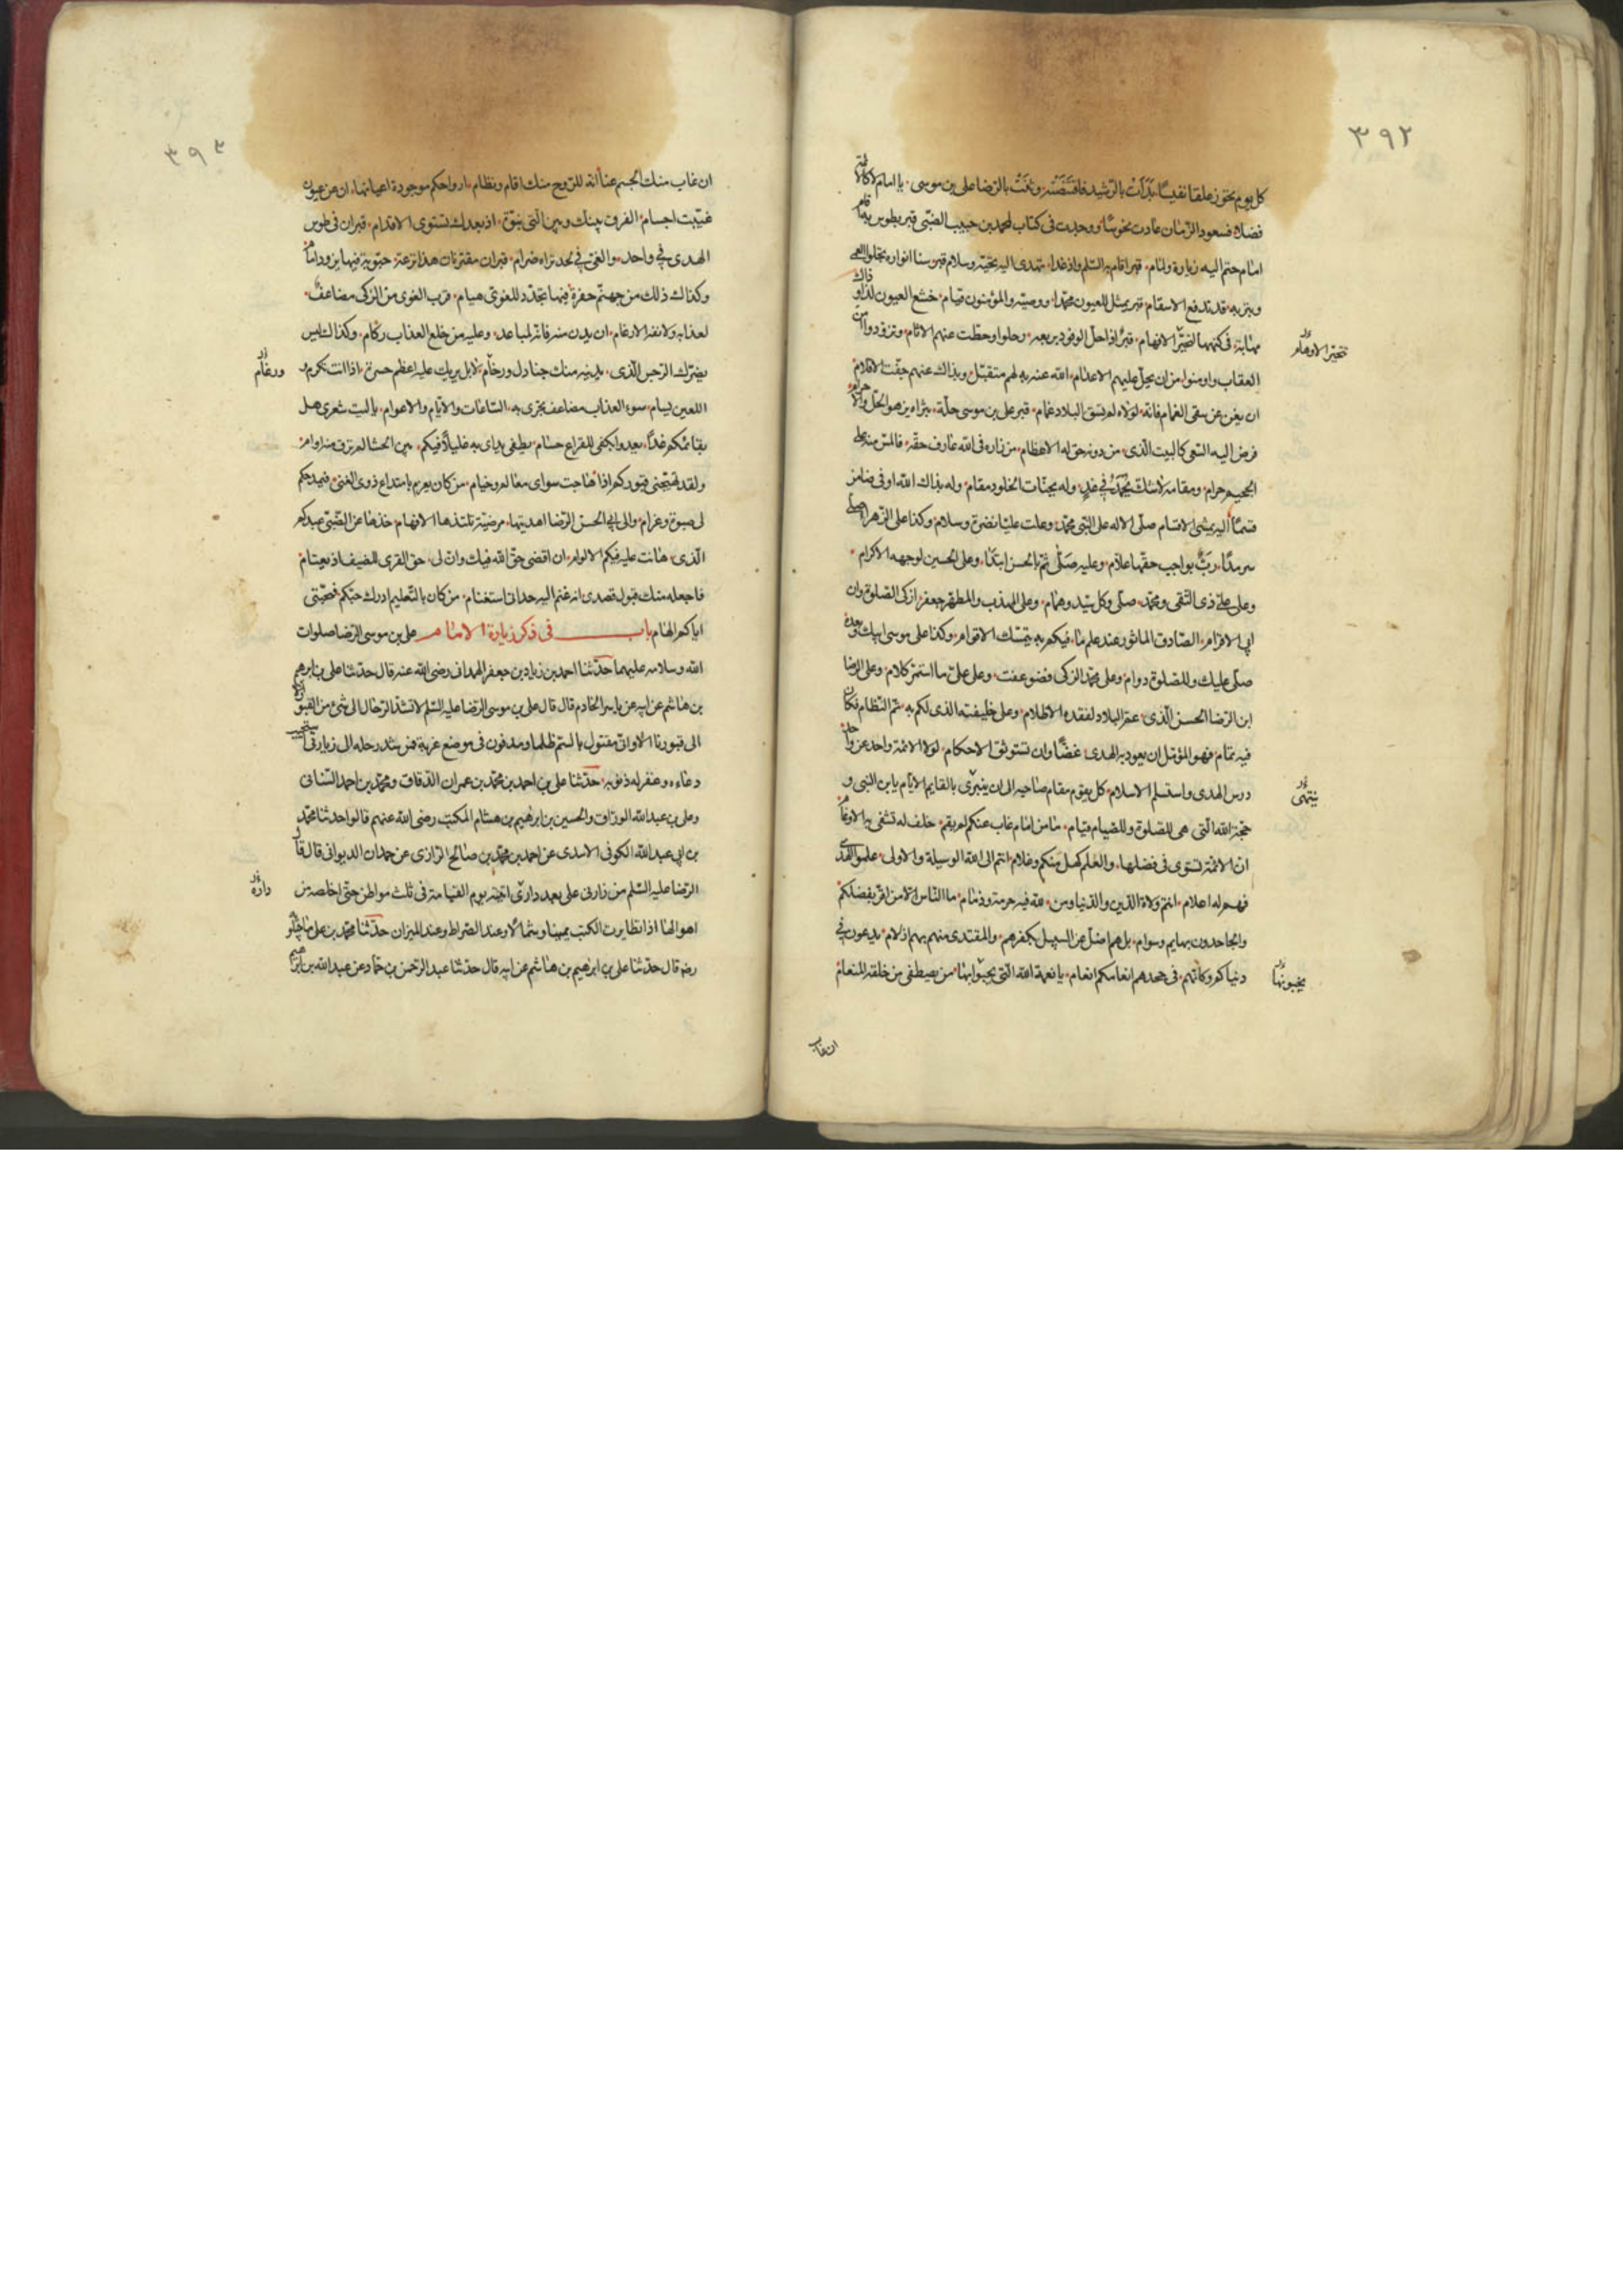 ٣٩٢
كل يوم يحوز علقا نفيسا بدأت بالرشيد فاقتنصته وثنت بالرضا علي بن موسى يا امام لا كالائمة
فضلا فسعود الزمان عادت نحوسا ووجدت في كتاب لمحمد بن حبيب الضبي قبر بطوس به اقام
امام حتم اليه زيارة ولمام قبر اقام به السلم واذ غدا تهدى اليه تحية وسلام قبر سنا انواره تجلو العمى
وبتربه قد تدفع الاسقام قبر يمثل للعيون محمدا ووصيه والمؤمنون قيام خشع العيون لذا وذاك
مهابة في كنهها لتحير الافهام قبر اذا حل الوفود بربعه رحلوا وحطت عنهم الاثام وتزودوا امن
تتحير الاوهام
العقاب واومنوا من ان يحل عليهم الاعدام الله عنه به لهم متقبل وبذاك عنهم جفت الاقلام
ان يغن عن سقى الغمام فانه لولاه لم تسق البلاد غمام قبر علي بن موسى حله بثراه يزهو الحل والاحرام
فرض اليه السعى كالبيت الذى من دونه حق له الاعظام من زاره في الله عارف حقه فالمس منه على
الجحيم حرام ومقامه لا شك يحمد في غد وله بجنات الخلود مقام وله بذاك الله اوفى ضامن
قسما اليه ينتهى الاقسام صلى الاله على النبي محمد وعلت عليا نضرة وسلام وكذا على الزهراء صلى
سرمدا رب بواجب حقها علام وعليه صلى ثم بالحسن ابتدا وعلى الحسين لوجهه الاكرام
وعلى علي ذى التقى ومحمد صلى وكل سيد وهمام وعلى المهذب والمطهر جعفر ازكى الصلوة وان
ابى الاقزام الصادق الماثور عنه علم ما فيكم به يتمسك الاقوام وكذا على موسى ابيك وبعده
صلى عليك وللصلوة دوام وعلى محمد الزكى فضوعفت وعلى علي ما استمر كلام وعلى الرضا
ابن الرضا الحسن الذى عم البلاد لفقده الاظلام وعلى خليفته الذى لكم به تم النظام فكان
فيه تمام فهو المؤمل ان يعود به الهدى غضا وان تستوثق الاحكام لولا الائمة واحد عن واحد
درس الهدى واستسلم الاسلام كل يقوم مقام صاحبه الى ان ينبرى بالقايم الايام يا بن النبي و
ينتهى
حجة الله التى هى للصلوة وللصيام قيام ما من امام غاب عنكم لم يقم خلف له تشفى به الاوغام
ان الائمة تستوى في فضلها والعلم كهل منكم وغلام انتم الى الله الوسيلة والاولى علموا الهدى
فهم له اعلام انتم ولاة الدين والدنيا ومن لله فيه حرمة وذمام ما الناس الا من اقر بفضلكم
والجاحدون بهايم وسوام بل هم اضل عن السبيل بكفرهم والمقتدى منهم بهم ازلام يدعون في
دنياكم وكانهم في جحدهم انعامكم انعام يا نعمة الله التى يحبوا بها من يصطفى من خلقه المنعام
يحبونها
ان غاب
٣٩٣
ان غاب منك الجسم عنا انه للروح منك اقام ونظام ارواحكم موجودة اعيانها ان عن عيون
غيبت اجسام الفرق بينك وبين النبي نبوة اذ بعدك تستوى الاقدام قبران في طوس
الهدى في واحد والغي في لحد تراه ضرام قبران مقترنان هذا ترعة حبوية فيها يزور امام
وكذلك ذلك من جهنم حفرة فيها تجدد للغوى هيام قرب الغوى من الزكى مضاعف
لعذابه ولانفه الارغام ان يدن منه فانه لمباعد وعليه من خلع العذاب ركام وكذاك ليس
يضرك الرجس الذى يدنيه منك جنادل ورخام لا بل يريك عليه اعظم حسرة اذ انت تكرم و
ورغام
اللعين يسام سوء العذاب مضاعف يجرى به الساعات والايام والاعوام يا ليت شعرى هل
بقائمكم غدا يغدو ابكفى للقراع حسام تطفى يداى به غليلا فيكم بين الحشا لم ترق منه اوام
ولقد تهيجنى قبوركم اذا هاجت سواى معالم وخيام من كان يغرم بامتداح ذوى الغنى فبمدحكم
لى صبوة وغرام والى ابي الحسن الرضا اهديتها مرضية تلتذها الافهام خذها عن الضبي عبدكم
الذى هانت عليه فيكم الالوام ان اقض حق الله فيك وان لى حق القرى للضيف اذ يعتام
فاجعله منك قبول قصدى انه غنم اليه حدانى استغنام من كان بالتعليم ادرك حبكم فمحبتى
اياكم الهام باب في ذكر زيارة الامام علي بن موسى الرضا صلوات
الله وسلامه عليهما حدثنا احمد بن زياد بن جعفر الهمدانى رضى الله عنه قال حدثنا علي بن ابرهيم
بن هاشم عن ابيه عن ياسر الخادم قال قال علي بن موسى الرضا عليه السلم لا تشد الرحال الى شئ من القبور
الى قبورنا الا وانى مقتول بالسم ظلما ومدفون في موضع غربة فمن شد رحله الى زيارتى استجيب
دعاءه وغفر له ذنوبه حدثنا علي بن احمد بن محمد بن عمران الدقاق ومحمد بن احمد السنانى
وعلي بن عبد الله الوراق والحسين بن ابرهيم بن هشام المكتب رضى الله عنهم قالوا حدثنا محمد
بن ابي عبد الله الكوفى الاسدى عن احمد بن محمد بن صالح الرازى عن حمدان الديوانى قال قال
الرضا عليه السلم من زارنى على بعد دارى اتيته يوم القيامة في ثلث مواطن حتى اخلصه من
داره
اهوالها اذا تطايرت الكتب يمينا وشمالا وعند الصراط وعند الميزان حدثنا محمد بن علي ماجيلويه
رضه قال حدثنا علي بن ابرهيم بن هاشم عن ابيه قال حدثنا عبد الرحمن بن حماد عن عبد الله بن ابرهيم